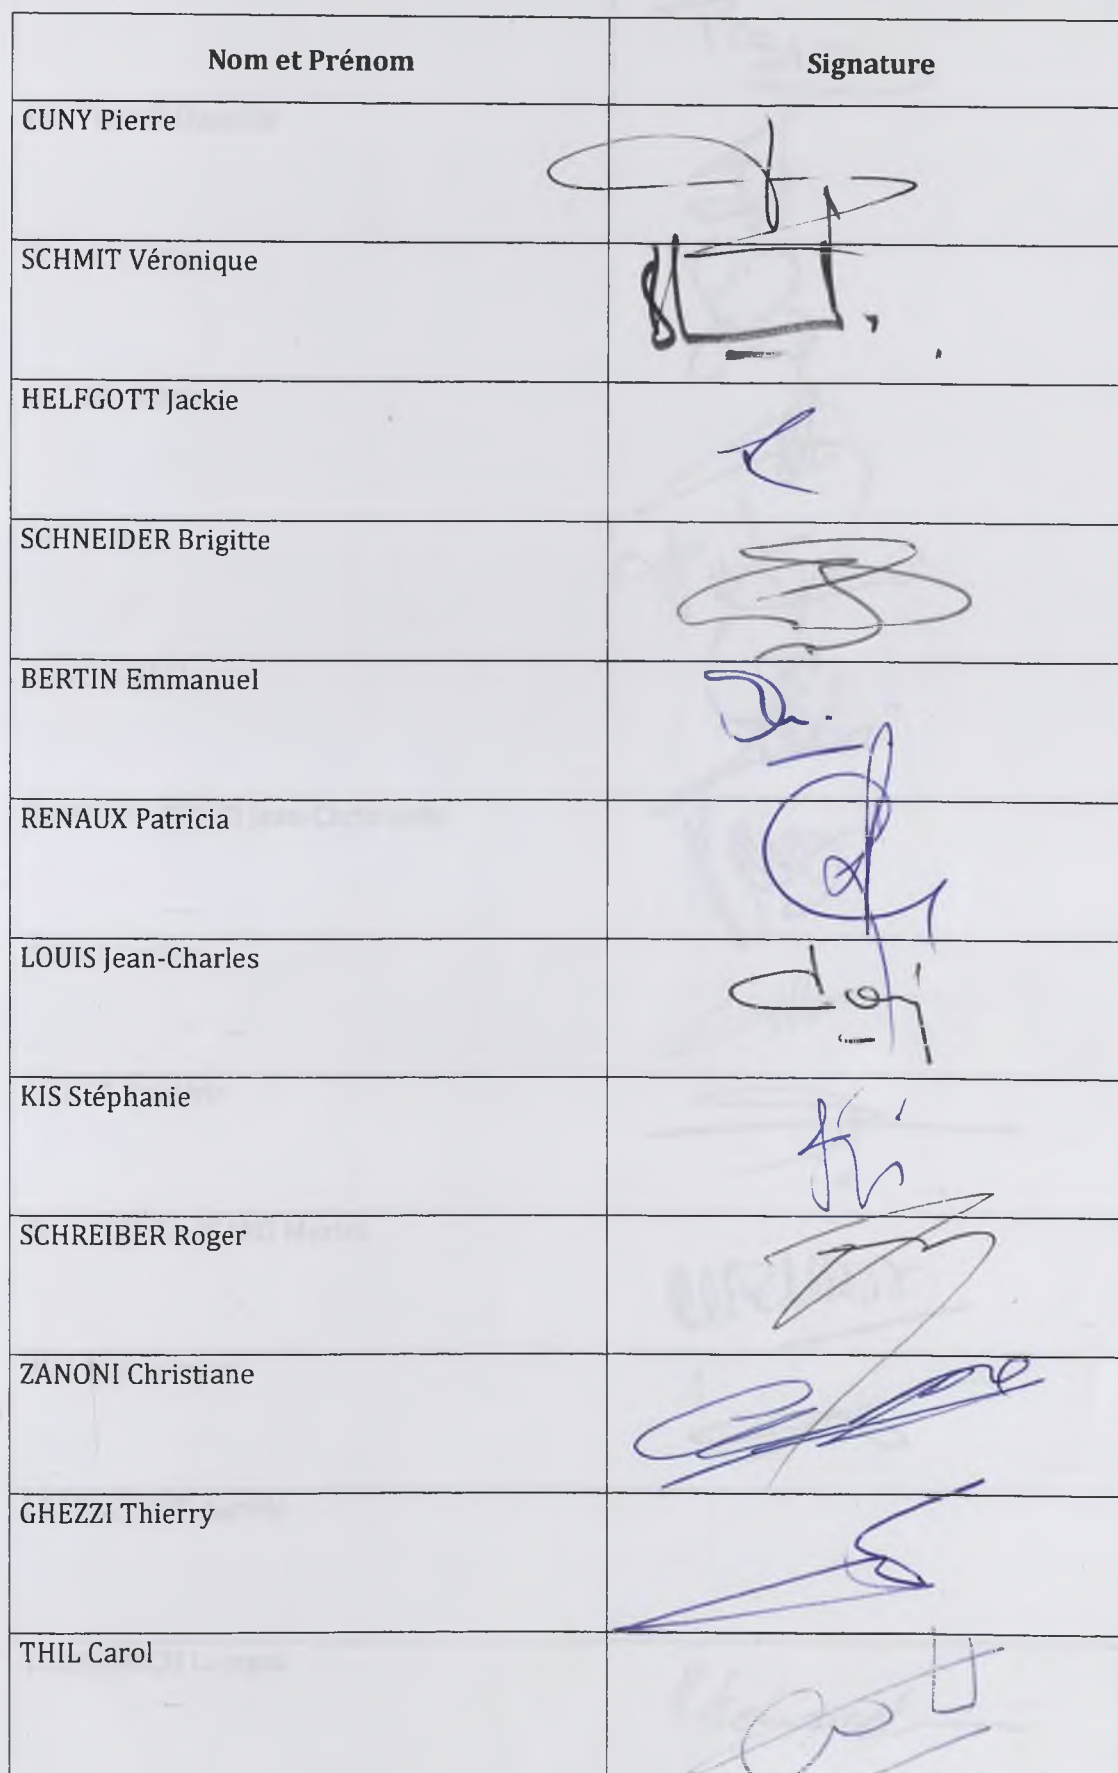 Nom et Prénom Signature
CUNY Pierre
SCHMIT Véronique
HELFGOTT Jackie
SCHNEIDER Brigitte
BERTIN Emmanuel
RENAUX Patricia
LOUIS Jean-Charles
KIS Stéphanie
SCHREIBER Roger
ZANONI Christiane
GHEZZI Thierry
THIL Carol